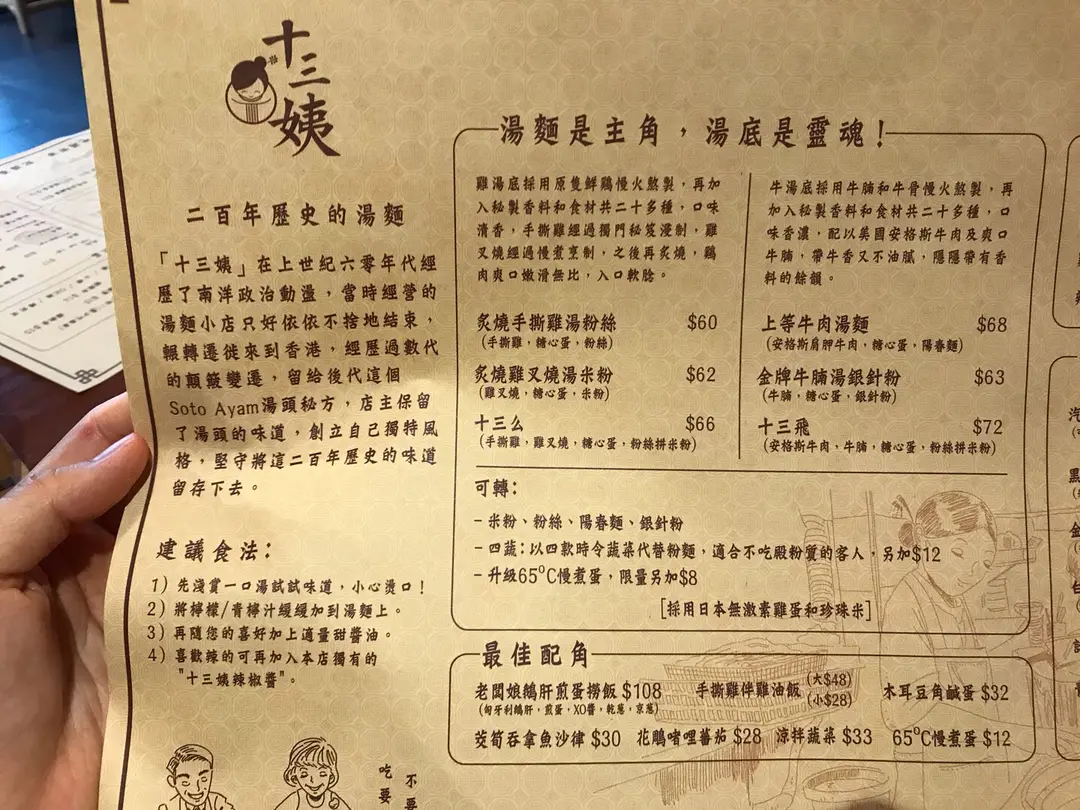 十三姨
二百年歷史的湯麵
「十三姨」在上世紀六零年代經
歷了南洋政治動盪，當時經營的
湯麵小店只好依依不捨地結束，
輾轉遷徙來到香港，經歷過數代
的顛簸變遷，留給後代這個
Soto Ayam湯頭秘方，店主保留
了湯頭的味道，創立自己獨特風
格，堅守將這二百年歷史的味道
留存下去。
建議食法：
1) 先淺嘗一口湯試試味道，小心燙口！
2) 將檸檬/青檸汁緩緩加到湯麵上。
3) 再隨您的喜好加上適量甜醬油。
4) 喜歡辣的可再加入本店獨有的
"十三姨辣椒醬"。
湯麵是主角，湯底是靈魂！
雞湯底採用原隻鮮鷄慢火熬製，再加
入秘製香料和食材共二十多種，口味
清香，手撕雞經過獨門秘笈浸制，雞
叉燒經過慢煮烹制，之後再炙燒，鷄
肉爽口嫩滑無比，入口軟腍。
炙燒手撕雞湯粉絲 $60
(手撕雞，糖心蛋，粉絲)
炙燒雞叉燒湯米粉 $62
(雞叉燒，糖心蛋，米粉)
十三么 $66
(手撕雞，雞叉燒，糖心蛋，粉絲拼米粉)
牛湯底採用牛腩和牛骨慢火熬製，再
加入秘製香料和食材共二十多種，口
味香濃，配以美國安格斯牛肉及爽口
牛腩，帶牛香又不油膩，隱隱帶有香
料的餘韻。
上等牛肉湯麵 $68
(安格斯肩胛牛肉，糖心蛋，陽春麵)
金牌牛腩湯銀針粉 $63
(牛腩，糖心蛋，銀針粉)
十三飛 $72
(安格斯牛肉，牛腩，糖心蛋，粉絲拼米粉)
可轉：
- 米粉、粉絲、陽春麵、銀針粉
- 四蔬：以四款時令蔬菜代替粉麵，適合不吃殿粉質的客人，另加$12
- 升級65°C慢煮蛋，限量另加$8
[採用日本無激素雞蛋和珍珠米]
最佳配角
老闆娘鵝肝煎蛋撈飯 $108
(匈牙利鵝肝，煎蛋，XO醬，乾葱，京葱)
手撕雞伴雞油飯 (大$48)
(小$28)
木耳豆角鹹蛋 $32
茭筍吞拿魚沙律 $30 花鵰啫哩蕃茄 $28 涼拌蔬菜 $33 65°C慢煮蛋 $12
不要
吃要